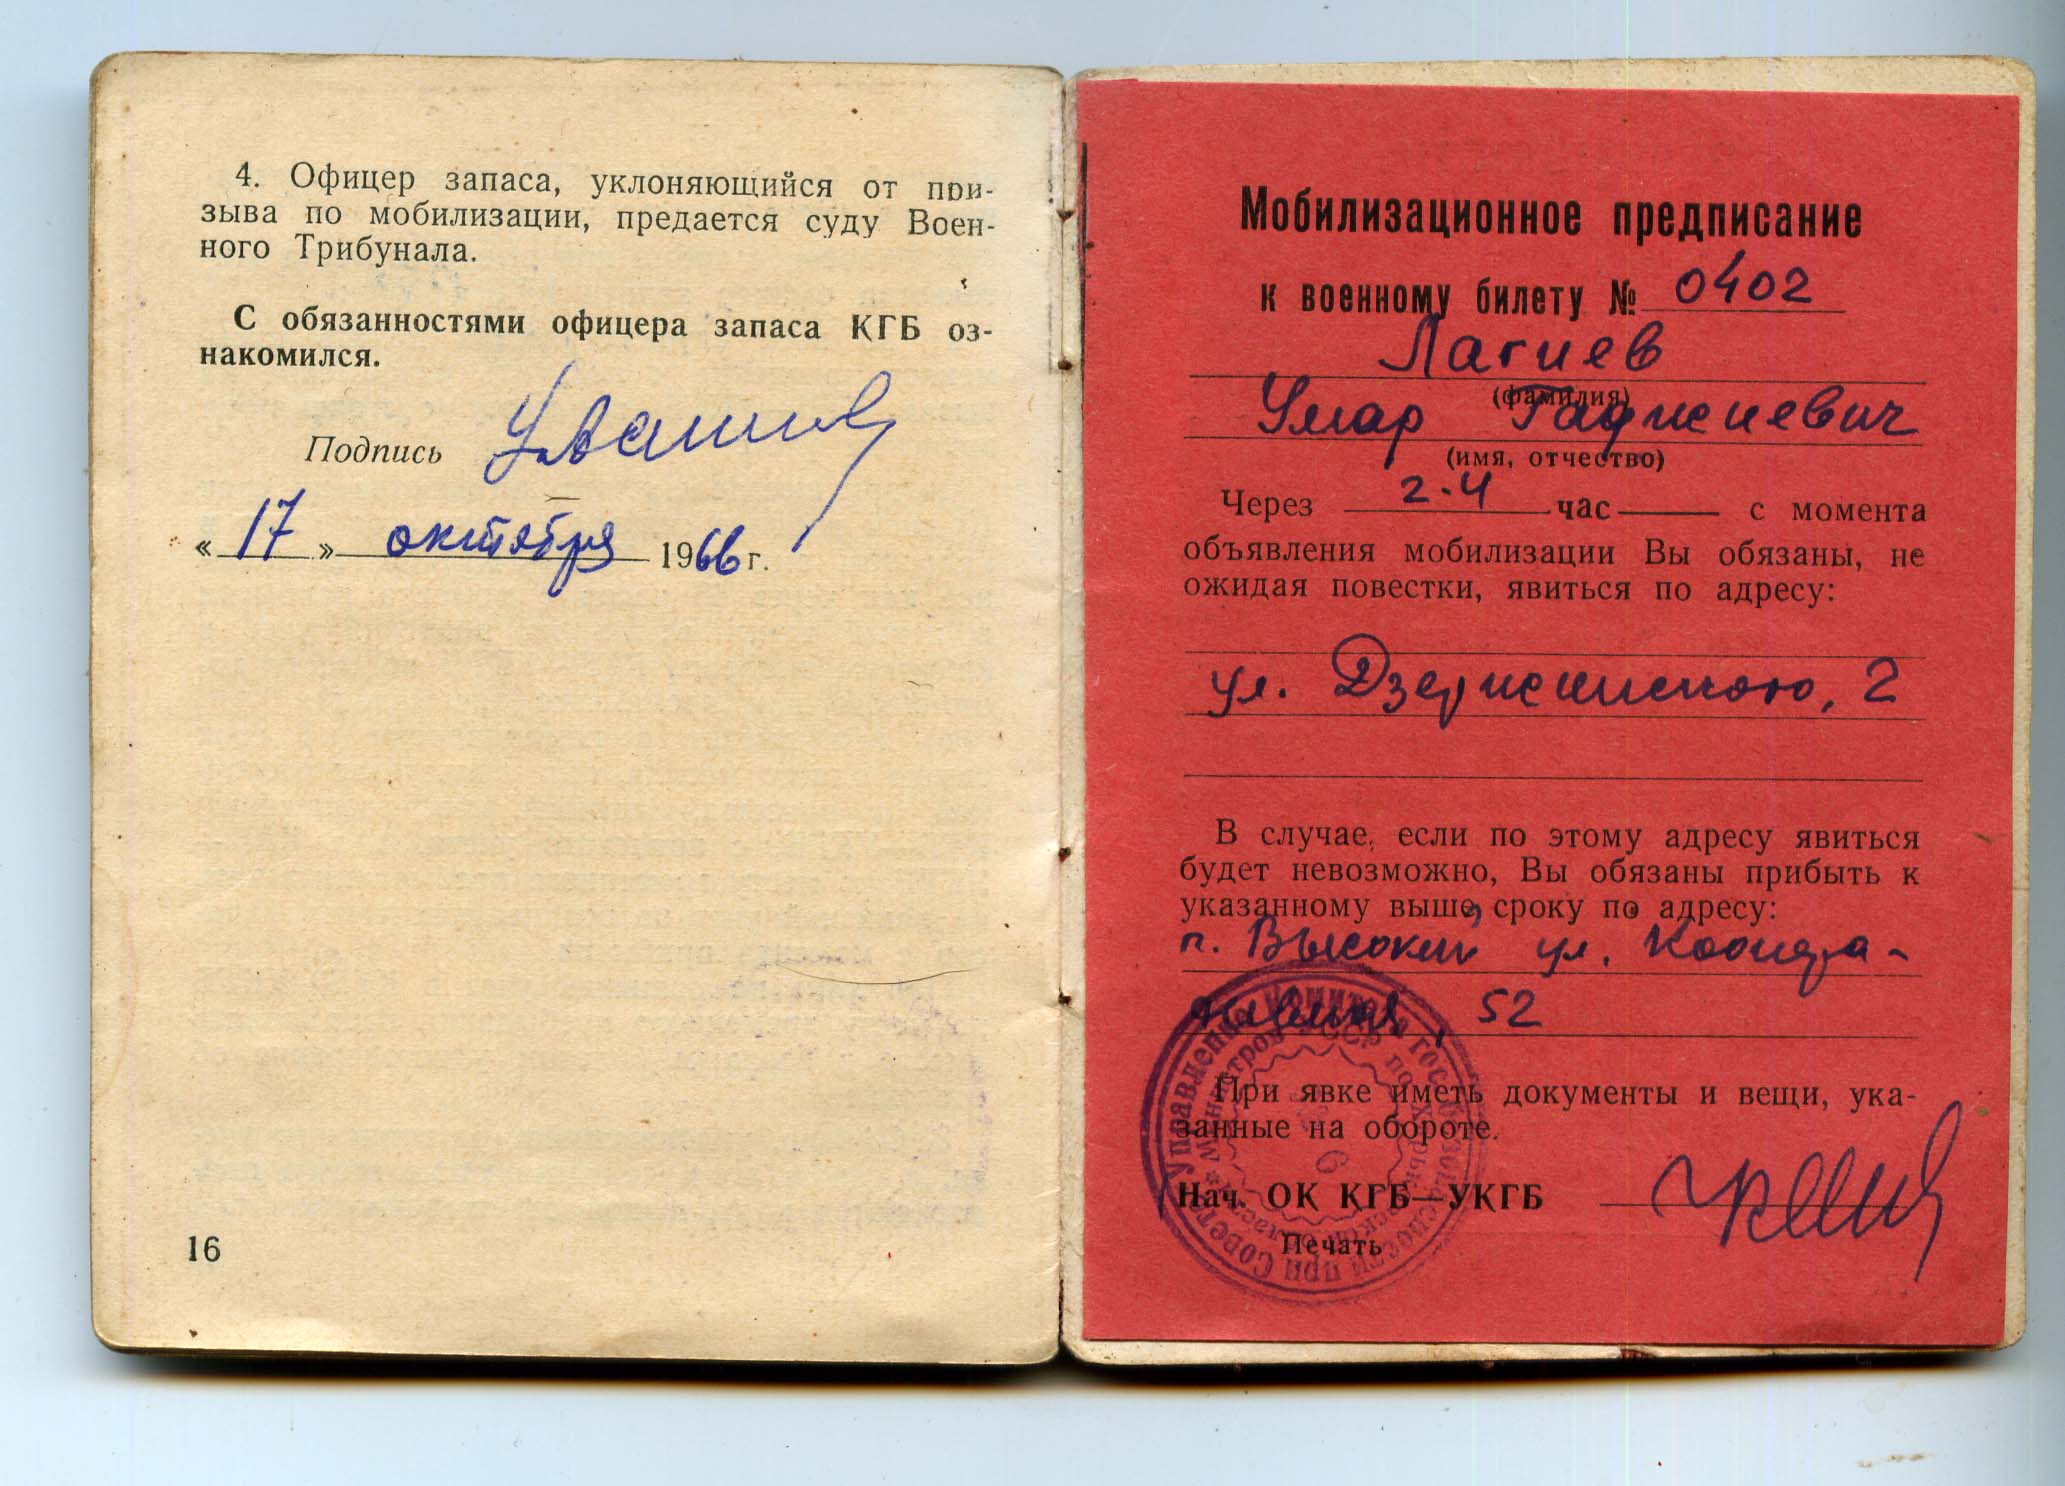 4. Офицер запаса, уклоняющийся от при-
зыва по мобилизации, предается суду Воен-
ного Трибунала.
С обязанностями офицера запаса КГБ оз-
накомился.
Подпись
«17» октября 1966 г.
16
Мобилизационное предписание
к военному билету № 0402
Лагиев
(фамилия)
Умар Гаджиевич
(имя, отчество)
Через 2-4 час с момента
объявления мобилизации Вы обязаны, не
ожидая повестки, явиться по адресу:
ул. Дзержинского, 2
В случае, если по этому адресу явиться
будет невозможно, Вы обязаны прибыть к
указанному выше сроку по адресу:
п. Высокий, ул.
52
При явке иметь документы и вещи, ука-
занные на обороте.
Нач. ОК КГБ—УКГБ
Печать
Управление Комитета госбезопасности при Совете
Министров СССР по Харьковской области